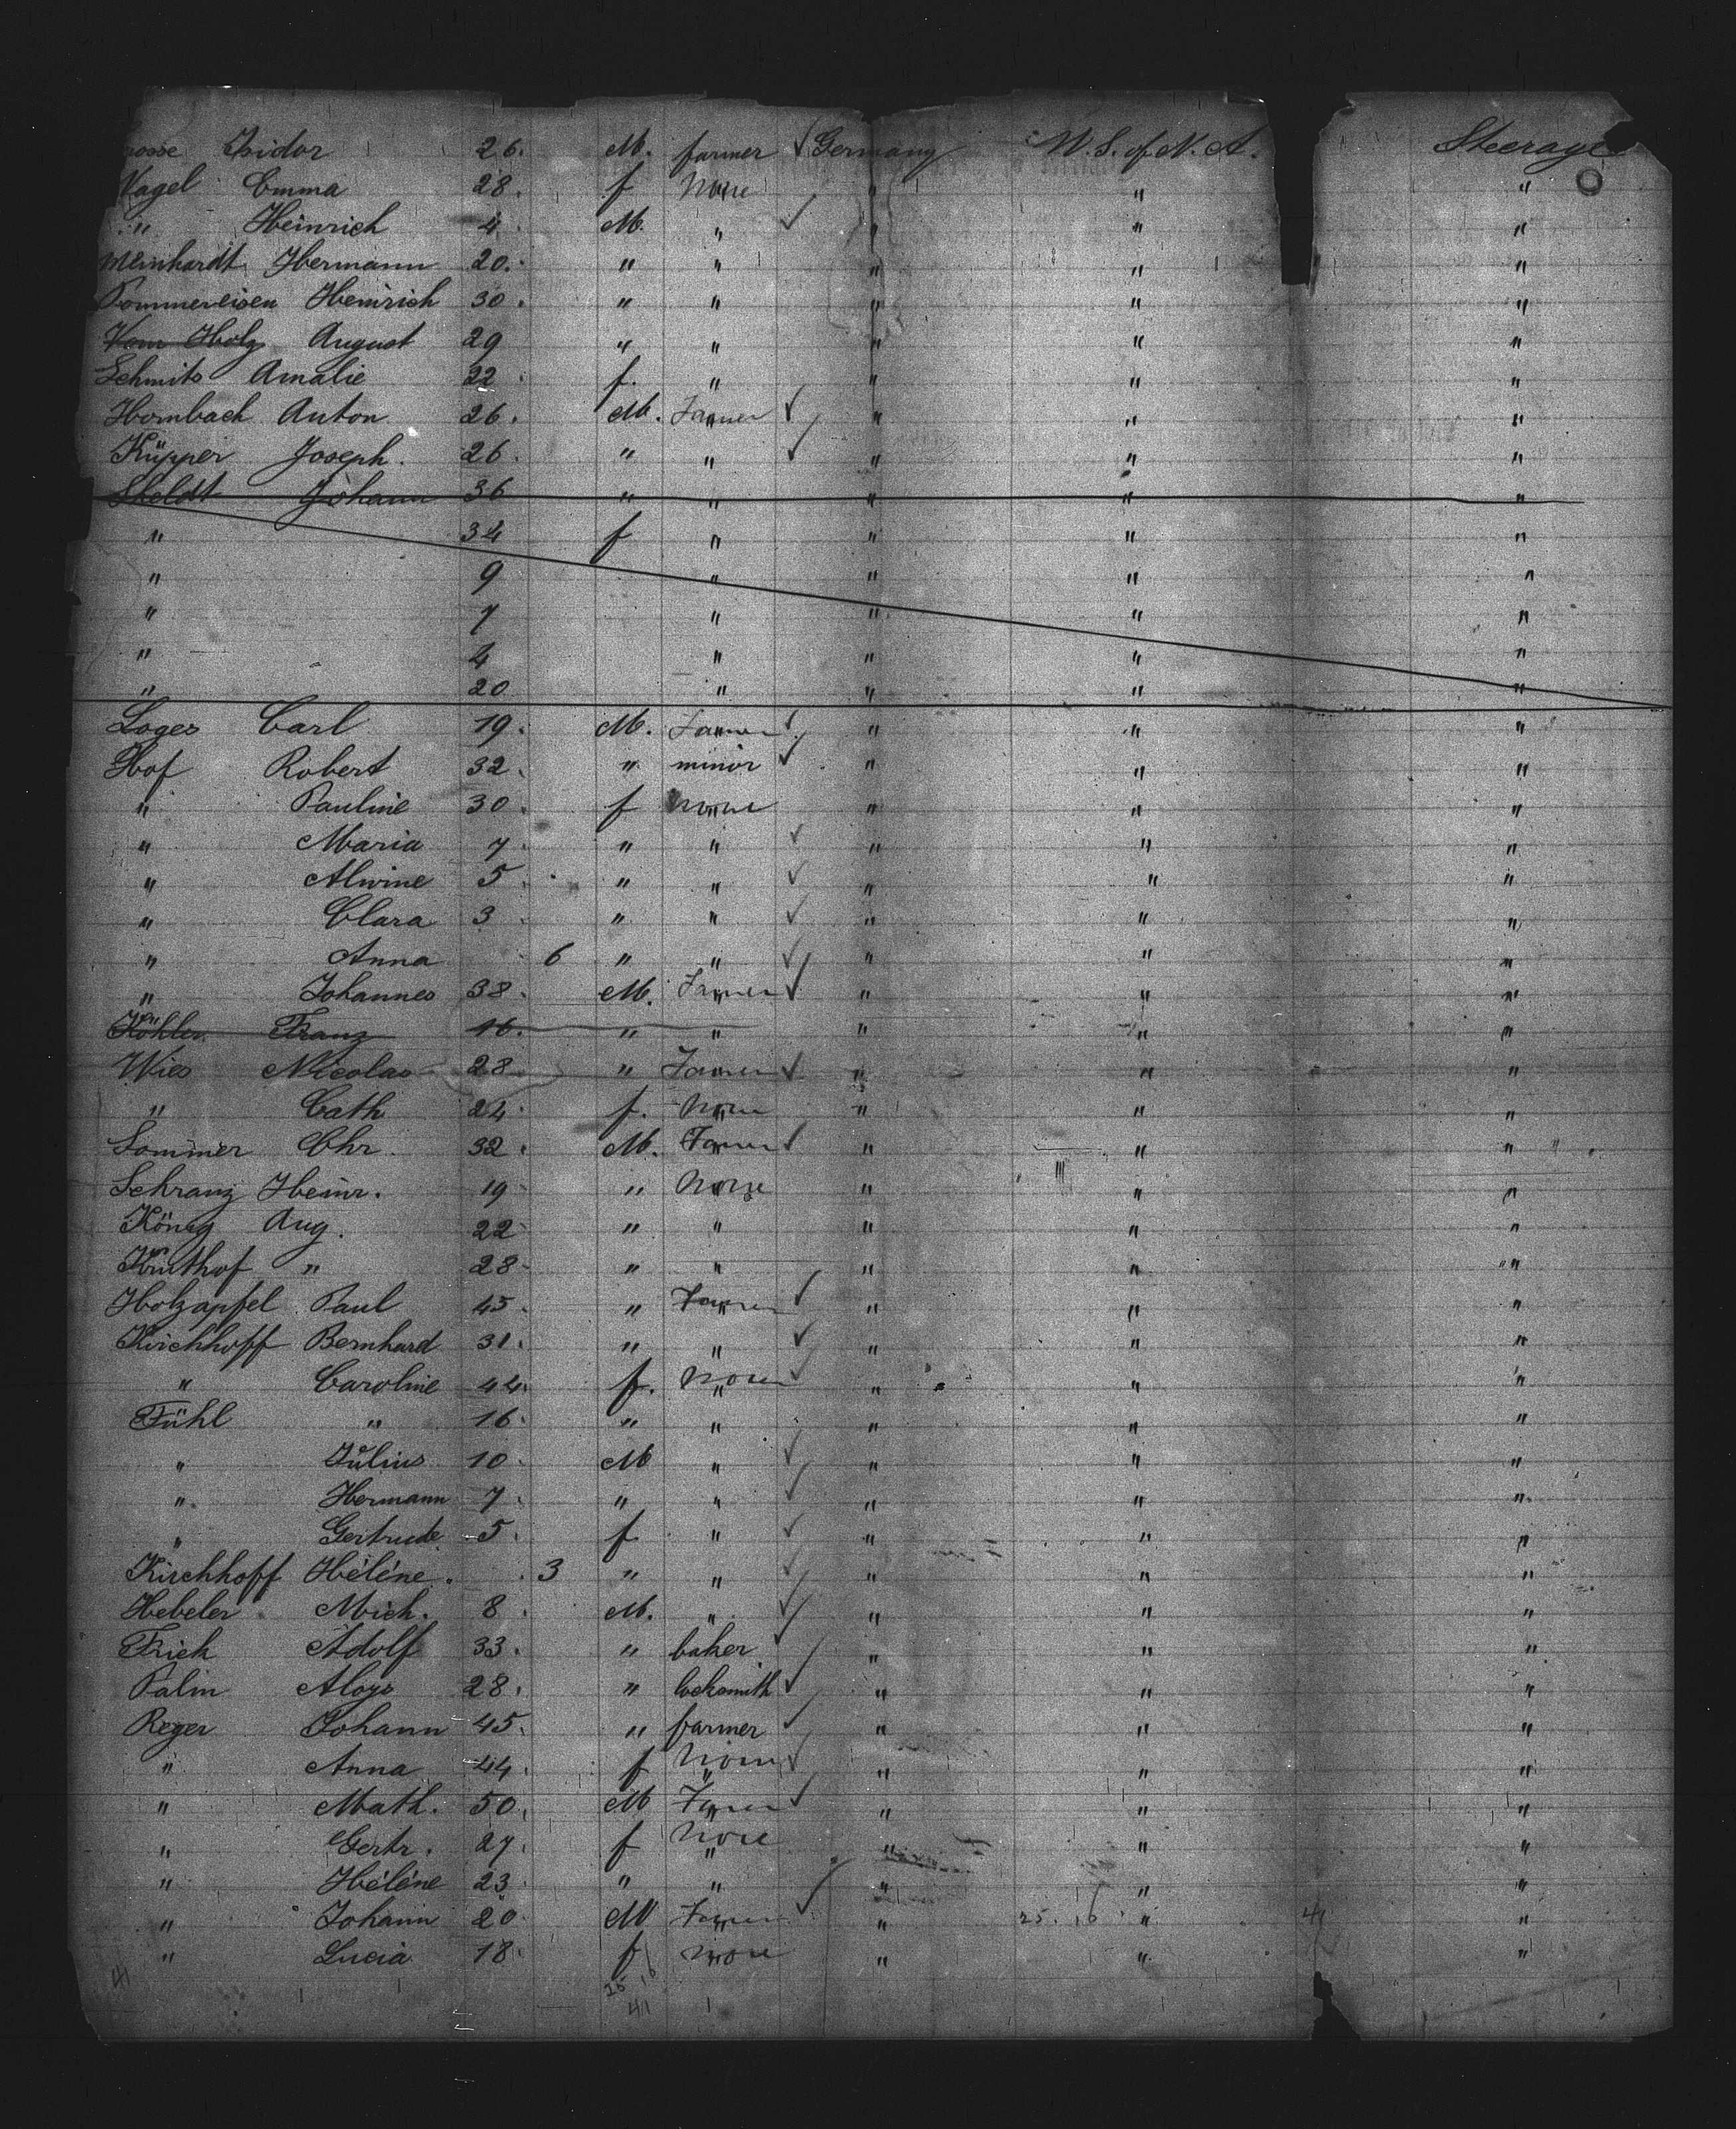 rosse Isidor 26. M. farmer ✓ Germany U.S. of N.A. Steerage
Nagel Emma 28. f None " " "
" Heinrich 4. M. " ✓ " " "
Meinhardt Hermann 20. " " " " "
Pommereisen Heinrich 30. " " " " "
Vom Holz August 29 " " " " "
Schmits Amalie 22 f. " " " "
Hombach Anton 26. M. Farmer ✓ " " "
Küpper Joseph. 26. " " ✓ " " "
Johann 36 " " " " "
" 34 f " " " "
" 9 " " " "
" 7 " " " "
" 4 " " " "
" 20 " " " "
Loges Carl 19. M. Farmer ✓ " " "
Hof Robert 32. " minor ✓ " " "
" Pauline 30. f None " " "
" Maria 7. " " ✓ " " "
" Alwine 5. " " ✓ " " "
" Clara 3 " " ✓ " " "
" Anna 6 " " ✓ " " "
" Johannes 38. M. Farmer ✓ " " "
Köhler Franz 16. " " " " "
Wies Nicolas 28 " Farmer ✓ " " "
" Cath 24. f. None " " "
Sommer Chr. 32. M. Farmer ✓ " " "
Schranz Heinr. 19 " None " " "
König Aug. 22 " " " " "
" 28 " " " " "
Holzapfel Paul 45. " Farmer ✓ " " "
Kirchhoff Bernhard 31. " " ✓ " " "
" Caroline 44. f. None ✓ " " "
Fühl " 16. " " " " "
" Julius 10. M " ✓ " " "
" Hermann 7. " " ✓ " " "
" Gertrude. 5. f " ✓ " " "
Kirchhoff Hélène. 3 " " ✓ " " "
Hebeler Mich. 8. M. " ✓ " " "
Frick Adolf 33. " baker ✓ " " "
Palin Aloys 28. " locksmith ✓ " " "
Reger Johann 45. " farmer ✓ " " "
" Anna 44. f None ✓ " " "
" Math. 50. M Farmer ✓ " " "
" Gertr. 27. f None " " "
" Hélène 23. " " " " "
" Johann 20 M Farmer ✓ " 25. 16 " 41 "
" Lucia 18. f None " " "
41 25 16
41